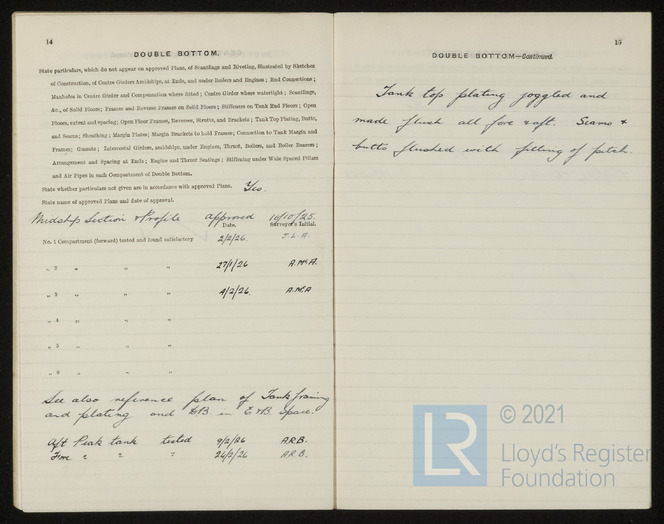 14
DOUBLE BOTTOM.
State particulars, which do not appear on approved Plans, of Scantlings and Riveting, illustrated by Sketches
of Construction, of Centre Girders Amidships, at Ends, and under Boilers and Engines; End Connections;
Manholes in Centre Girder and Compensation where fitted; Centre Girder where watertight; Scantlings,
&c., of Solid Floors; Frames and Reverse Frames on Solid Floors; Stiffeners on Tank End Floors; Open
Floors, extent and spacing; Open Floor Frames, Reverses, Struts, and Brackets; Tank Top Plating, Butts,
and Seams; Sheathing; Margin Plates; Margin Brackets to hold Frames; Connection to Tank Margin and
Frames; Gussets; Intercostal Girders, amidships, under Engines, Thrust, Boilers, and Boiler Bearers;
Arrangement and Spacing at Ends; Engine and Thrust Seatings; Stiffening under Wide Spaced Pillars
and Air Pipes in each Compartment of Double Bottom.
State whether particulars not given are in accordance with approved Plans. Yes.
State name of approved Plans and date of approval.
Midship Section & Profile approved 16/10/25.
Date. Surveyor's Initial.
No. 1 Compartment (forward) tested and found satisfactory 2/2/26. J.L.A.
„ 2 „ „ „ 27/1/26 A.McA.
„ 3 „ „ „ 4/2/26. A.McA
„ 4 „ „ „
„ 5 „ „ „
„ 6 „ „ „
See also reference plan of Tank framing
and plating and D.B. in E & B. Space.
Aft Peak tank tested 9/2/26 A.R.B.
Fore " " " 24/2/26 A.R.B.
15
DOUBLE BOTTOM—Continued.
Tank top plating joggled and
made flush all fore & aft. Seams &
butts flushed with filling of pitch.
LR
© 2021
Lloyd's Register
Foundation